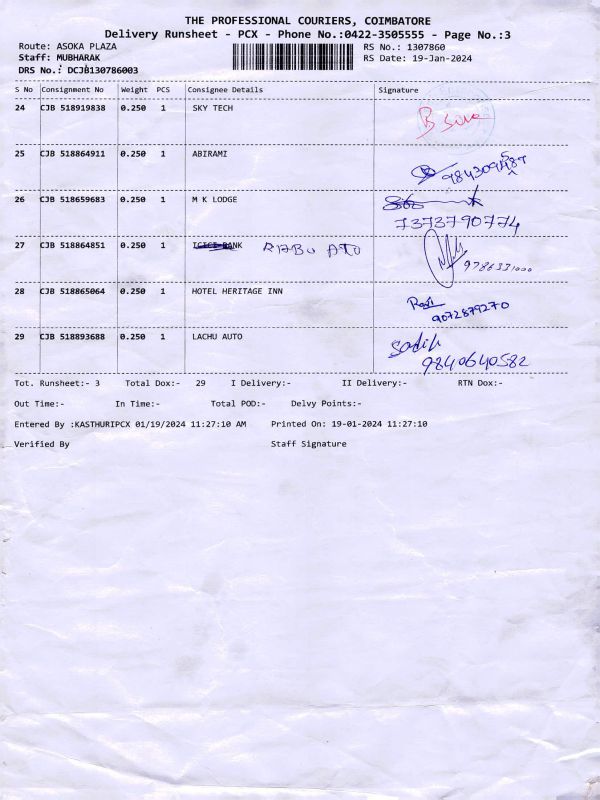 THE PROFESSIONAL COURIERS, COIMBATORE
Delivery Runsheet - PCX - Phone No.:0422-3505555 - Page No.:3
Route: ASOKA PLAZA RS No.: 1307860
Staff: MUBHARAK RS Date: 19-Jan-2024
DRS No.: DCJB130786003
S No Consignment No Weight PCS Consignee Details Signature
24 CJB 518919838 0.250 1 SKY TECH
25 CJB 518864911 0.250 1 ABIRAMI
26 CJB 518659683 0.250 1 M K LODGE
7373790774
27 CJB 518864851 0.250 1 ICICI BANK
9786331000
28 CJB 518865064 0.250 1 HOTEL HERITAGE INN Ravi
9072879270
29 CJB 518893688 0.250 1 LACHU AUTO Sadik
9840640582
Tot. Runsheet:- 3 Total Dox:- 29 I Delivery:- II Delivery:- RTN Dox:-
Out Time:- In Time:- Total POD:- Delvy Points:-
Entered By :KASTHURIPCX 01/19/2024 11:27:10 AM Printed On: 19-01-2024 11:27:10
Verified By Staff Signature